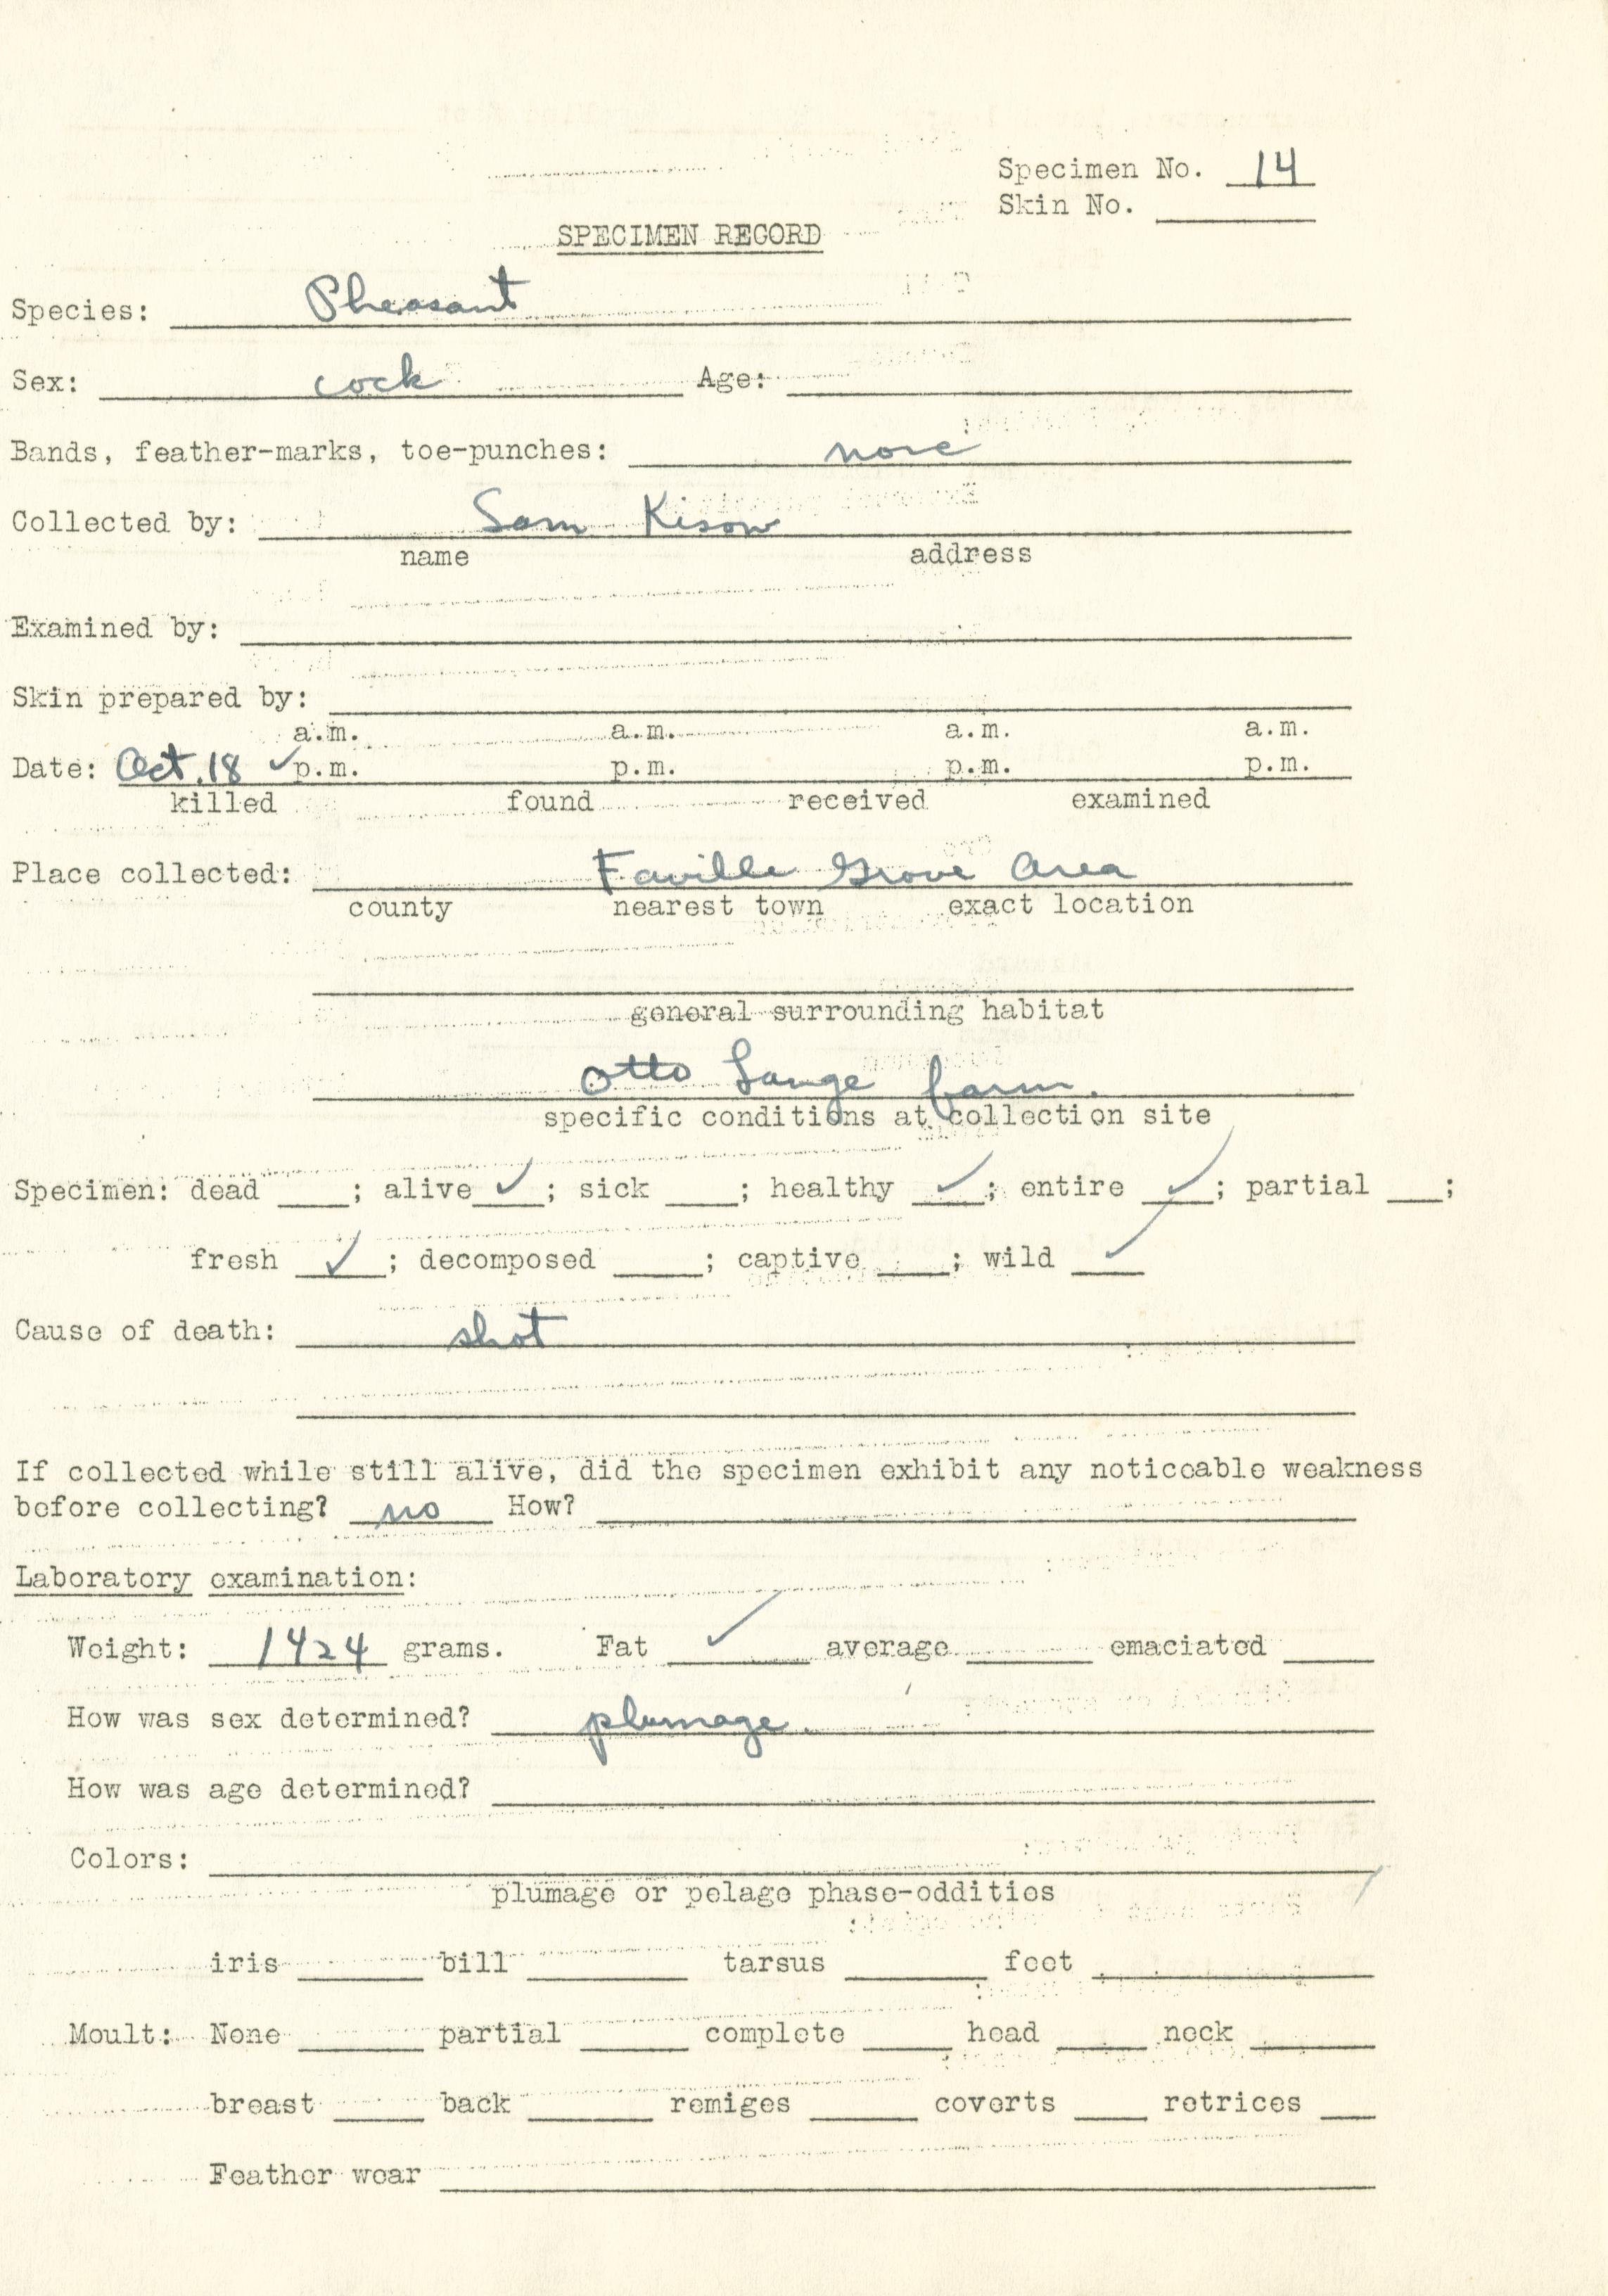 Specimen No. 14
Skin No.
SPECIMEN RECORD
Species: Pheasant
Sex: cock Age:
Bands, feather-marks, toe-punches: none
Collected by: Sam Kison
name address
Examined by:
Skin prepared by:
a.m. a.m. a.m. a.m.
Date: Oct. 18 ✓ p.m. p.m. p.m. p.m.
killed found received examined
Place collected: Faville Grove Area
county nearest town exact location
general surrounding habitat
Otto Lange farm.
specific conditions at collection site
Specimen: dead ; alive ✓; sick ; healthy ✓; entire ✓; partial ;
fresh ✓; decomposed ; captive ; wild ✓
Cause of death: shot
If collected while still alive, did the specimen exhibit any noticeable weakness
before collecting? no How?
Laboratory examination:
Weight: 1424 grams. Fat ✓ average emaciated
How was sex determined? plumage.
How was age determined?
Colors:
plumage or pelage phase-oddities
iris bill tarsus feet
Moult: None partial complete head neck
breast back remiges coverts retrices
Feather wear